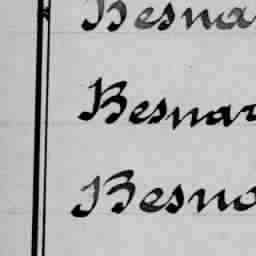 Besna
Besnar
Besna